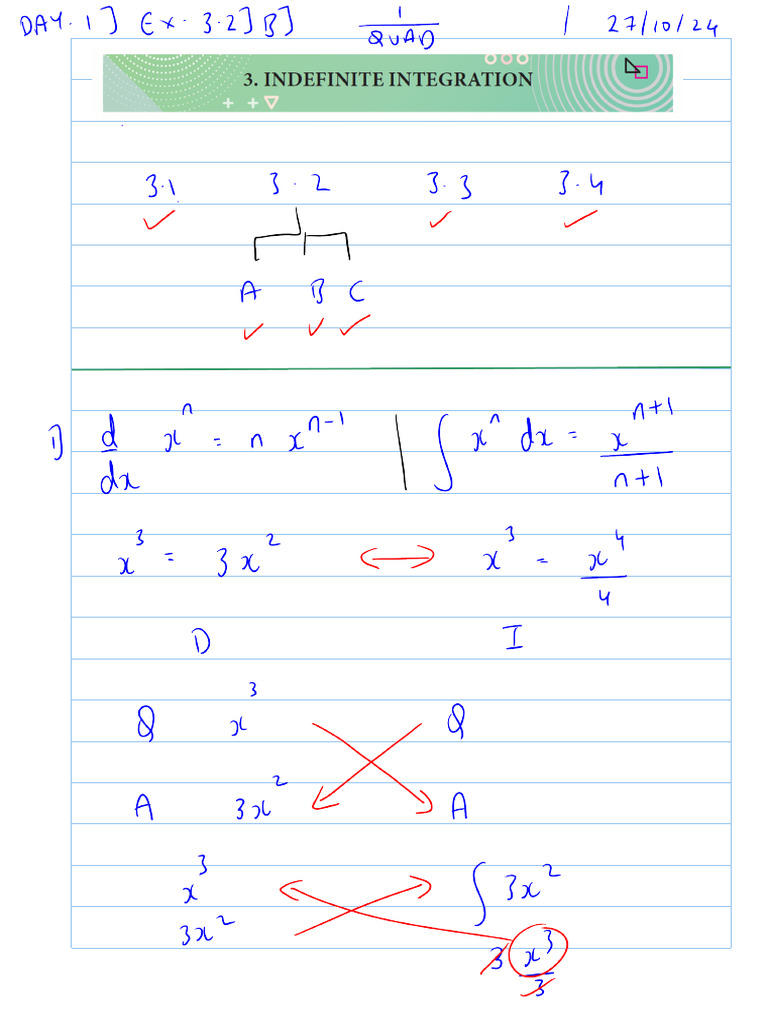 DAY. 1] Ex. 3.2] B] 1/QUAD | 27/10/24
3. INDEFINITE INTEGRATION
3.1 3.2 3.3 3.4
A B C
1] d/dx x^n = n x^{n-1} | ∫ x^n dx = x^{n+1}/n+1
x^3 = 3x^2 ↔ x^3 = x^4/4
D I
Q x^3 Q
A 3x^2 A
x^3 ∫ 3x^2
3x^2 3 x^3/3